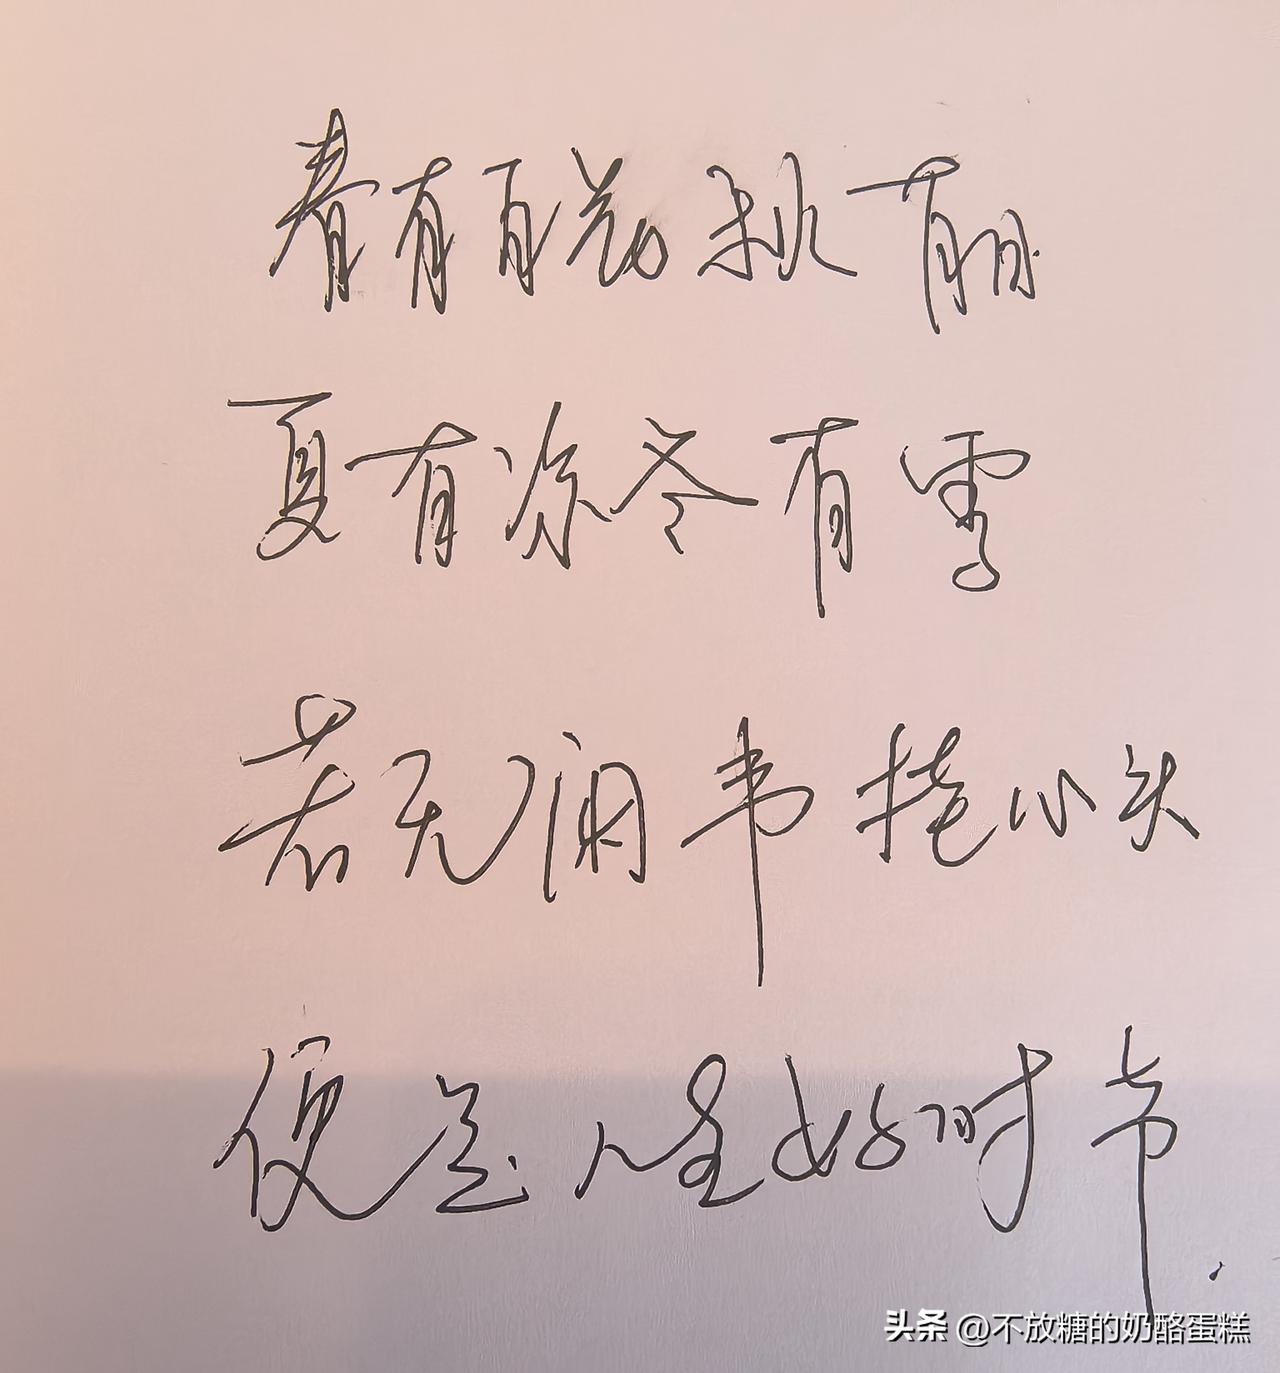 春有百花秋有月
夏有凉冬有雪
若无闲事挠心头
便是人生好时节.
头条 @不放糖的奶酪蛋糕